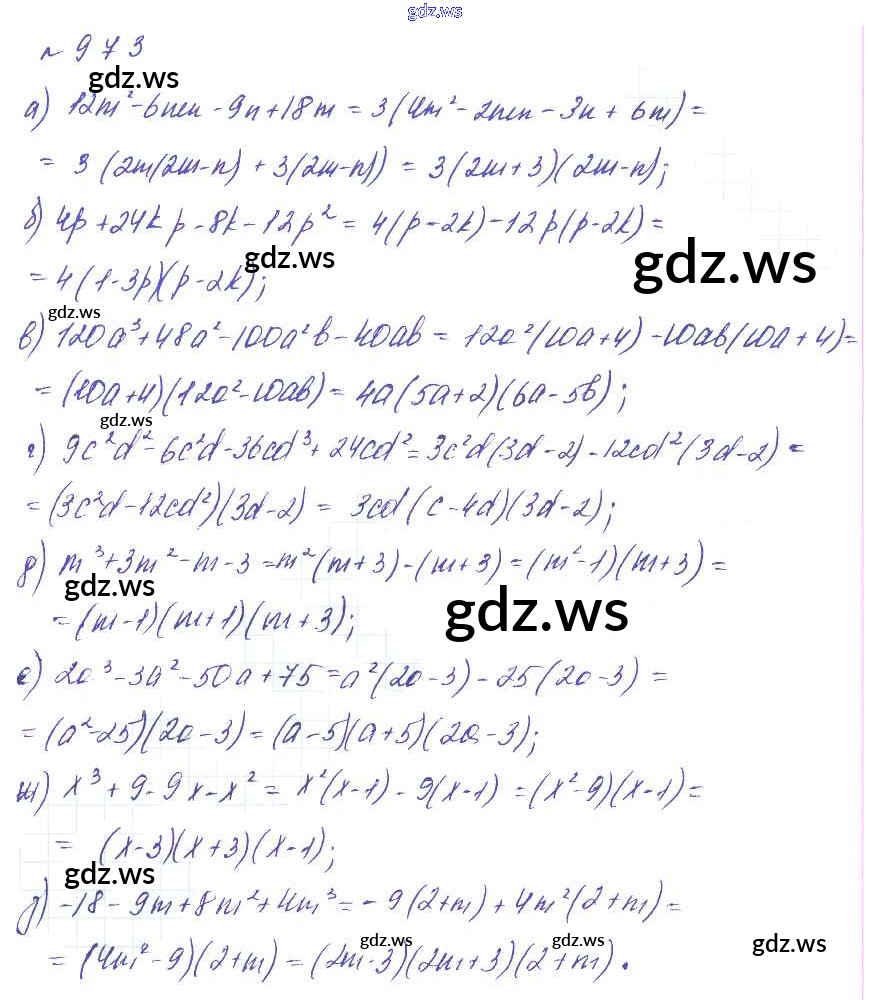 gdz.ws
№ 973
gdz.ws
а) 12m² - 6mn - 9n + 18m = 3(4m² - 2mn - 3n + 6m) =
= 3(2m(2m-n) + 3(2m-n)) = 3(2m+3)(2m-n);
б) 4p + 24kp - 8k - 12p² = 4(p-2k) - 12p(p-2k) =
gdz.ws gdz.ws
= 4(1-3p)(p-2k);
gdz.ws
в) 120a³ + 48a² - 100a²b - 40ab = 12a²(10a+4) - 10ab(10a+4) =
= (10a+4)(12a² - 10ab) = 4a(5a+2)(6a-5b);
gdz.ws
г) 9c²d² - 6c²d - 36cd³ + 24cd² = 3c²d(3d-2) - 12cd²(3d-2) =
= (3c²d - 12cd²)(3d-2) = 3cd(c-4d)(3d-2);
д) m³ + 3m² - m - 3 = m²(m+3) - (m+3) = (m²-1)(m+3) =
gdz.ws gdz.ws
= (m-1)(m+1)(m+3);
е) 2a³ - 3a² - 50a + 75 = a²(2a-3) - 25(2a-3) =
= (a²-25)(2a-3) = (a-5)(a+5)(2a-3);
ж) x³ + 9 - 9x - x² = x²(x-1) - 9(x-1) = (x²-9)(x-1) =
= (x-3)(x+3)(x-1);
gdz.ws
з) -18 - 9m + 8m² + 4m³ = -9(2+m) + 4m²(2+m) =
gdz.ws gdz.ws gdz.ws
= (4m²-9)(2+m) = (2m-3)(2m+3)(2+m).